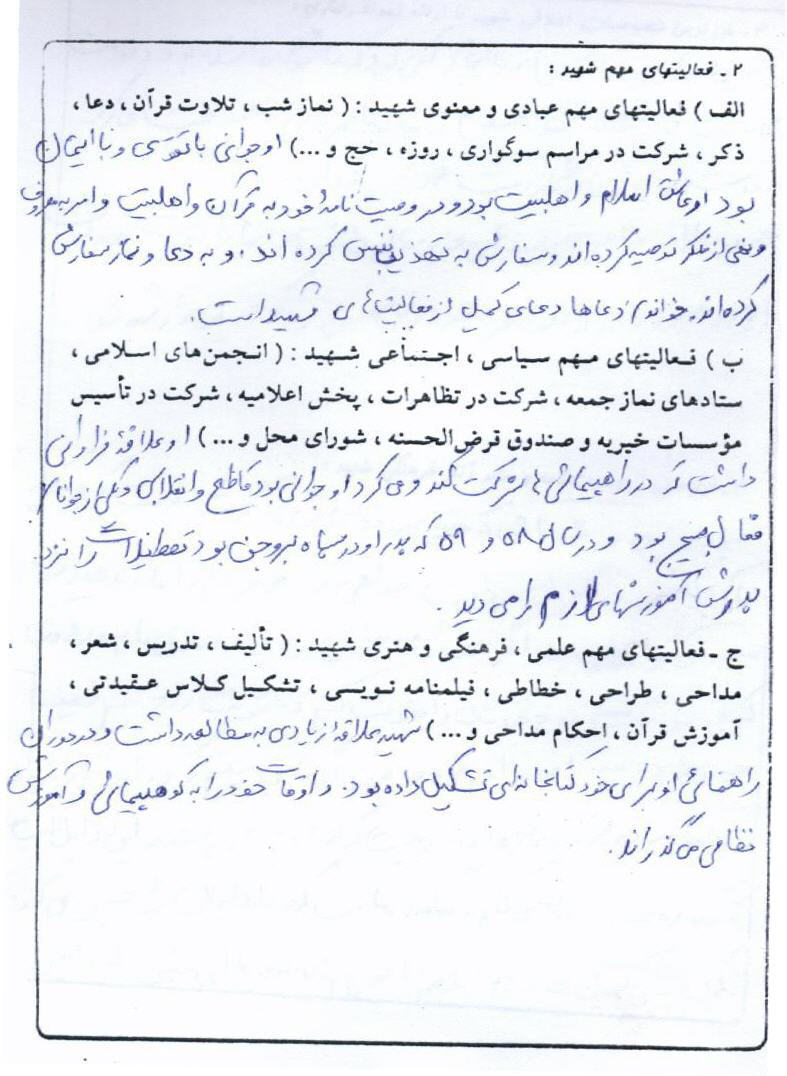 ۲ ـ فعالیتهای مهم شهید :
الف ) فعالیتهای مهم عبادی و معنوی شهید : ( نماز شب ، تلاوت قرآن ، دعا ،
ذکر ، شرکت در مراسم سوگواری ، روزه ، حج و ...) او جوانی با تقوی و با ایمان
بود او عاشق اسلام و اهلبیت بود و در وصیت نامهٔ خود به قرآن و اهلبیت و امر به معروف
و نهی از منکر توصیه کرده اند و سفارش به تهذیب نفس کرده اند . و به دعا و نماز سفارش
کرده اند. خواندن دعاها دعای کمیل از فعالیت های شهید است .
ب ) فعالیتهای مهم سیاسی ، اجتماعی شهید : ( انجمن‌های اسلامی ،
ستادهای نماز جمعه ، شرکت در تظاهرات ، پخش اعلامیه ، شرکت در تأسیس
مؤسسات خیریه و صندوق قرض‌الحسنه ، شورای محل و ... ) او علاقهٔ فراوانی
داشت که در راهپیمائی ها شرکت کند و می کرد او جوانی بود قاطع و انقلابی و یکی از جوانان
فعال بسیج بود و در سال ۵۸ و ۵۹ که پدر او در سپاه بروجن بود تعطیلات را نزد
پدرش آموزشهای لازم را می دید .
ج ـ فعالیتهای مهم علمی ، فرهنگی و هنری شهید : ( تألیف ، تدریس ، شعر ،
مداحی ، طراحی ، خطاطی ، فیلمنامه نویسی ، تشکیل کلاس عقیدتی ،
آموزش قرآن ، احکام مداحی و ... ) شهید علاقه زیادی به مطالعه داشت و در دوران
راهنمائی او برای خود کتابخانه ای تشکیل داده بود . و اوقات خود را به کوهپیمائی و آموزش
نظامی می گذراند .